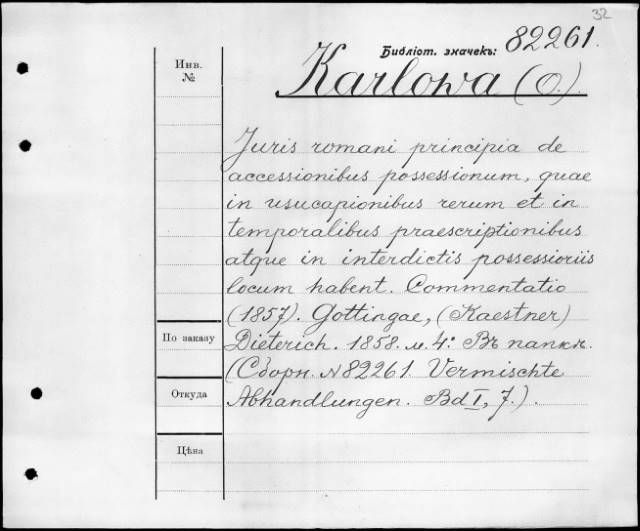 32
Библіот. значекъ: 82261.
Инв.
№
Karlowa (O.)
Juris romani principia de
accessionibus possessionum, quae
in usucapionibus rerum et in
temporalibus praescriptionibus
atque in interdictis possessioriis
locum habent. Commentatio
(1857). Gottingae, (Kaestner)
По заказу
Dieterich. 1858. м. 4: Въ папкѣ.
(Сборн. №82261 Vermischte
Откуда
Abhandlungen. Bd I, 7.).
Цѣна